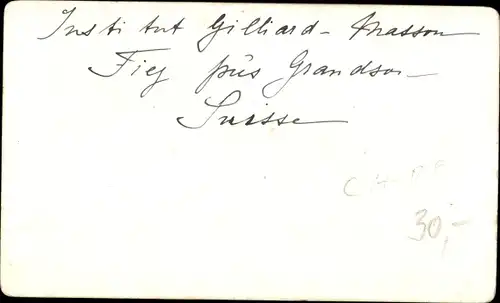 Institut Gilliard - Masson
Fiez près Grandson
Suisse
30,-